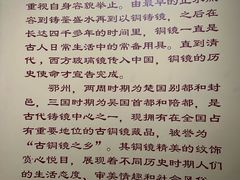 重视自身容貌举止。由最早的止水照
容到铸鉴盛水再到以铜铸镜，之后在
长达四千多年的时间里，铜镜一直是
古人日常生活中的常备用具。直到清
代，西方玻璃镜传入中国，铜镜的历
史使命才宣告完成。
鄂州，两周时期为楚国别都和封
邑，三国时期为吴国首都和陪都，是
古代铸镜中心之一，现拥有在全国占
有重要地位的古铜镜藏品，被誉为
“古铜镜之乡”。其铜镜精美的纹饰
赏心悦目，展现着不同历史时期人们
的生活态度、审美情趣和社会风